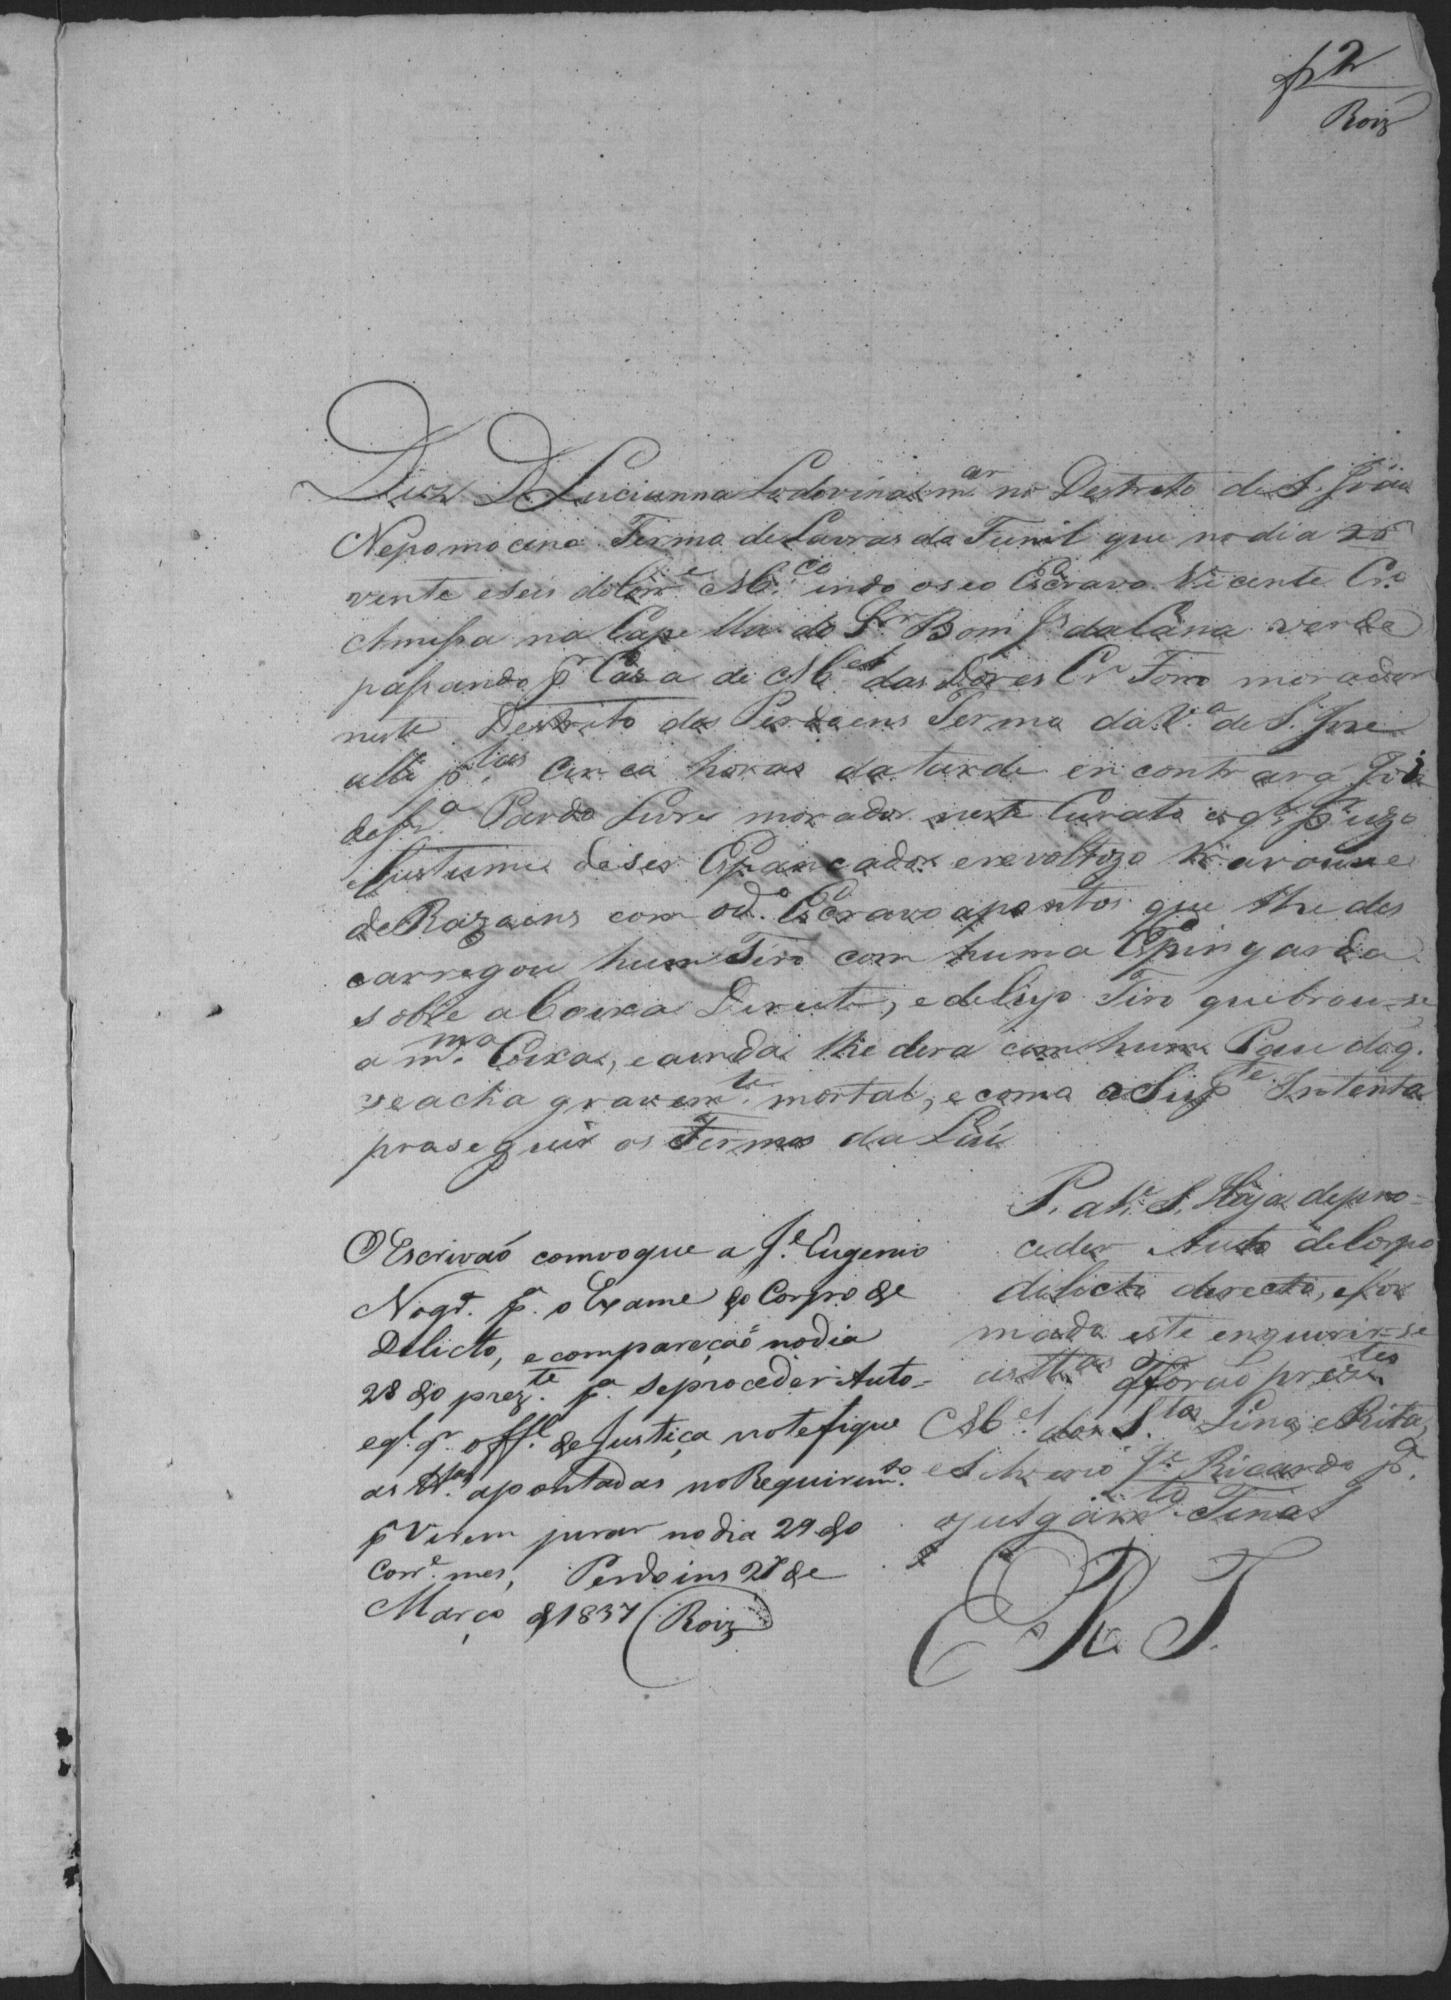 f 2
Roiz
Diz D. Lucianna Lodovina m.ar no Destrito de S. João
Nepomoceno Termo de Lavras do Funil que no dia
vente e seis do Corr.e M.ço indo o seo Escravo Vicente Cr.o
A missa na Capella do Sr. Bom Js. da Cana verde
passando p.r Caza de M.el das Dores Cr. Forro morador
neste Destrito dos Perdoens Termo da V.a de S. Jose
alli p.las Cinco horas da tarde encontrara João
de Pardo Livre morador neste Curato e q. p.r uzo
e Custume de ser Espancador e revoltozo travouse
de Razoens com o d.o Escravo a pontos que lhe des
carregou hum Tiro com huma Espingarda
sobre a Coixa Direita, e de Cujo Tiro quebrou-se
a m.ma Coixa, e ainda lhe dera com hum Pau do q.
se acha gravem.te mortal, e como a Sup.te Intenta
proseguir os Termos da Lei
P. a V. S. Haja de pro-
ceder Auto de Corpo
dilicto directo, e for
mado este enquirir-se
as tt.as q forão prez.tes
M.el dos S.tos Lina, e Rita,
e Silverio Je. Ricardo p.a
o julgam.to Final
E R M.
O Escrivaó comvoque a Je. Eugenio
Nogr.a p.a o Exame do Corpo de
Delicto, e compareçaõ no dia
28 do prez.te p.a se proceder Auto-
e q.l q.r off.al de Justiça notefique
as tt.as apontadas no Requirim.to
p.a Virem jurar no dia 29 do
Corr.e mes, Perdoins 27 de
Março d 1837 Roiz